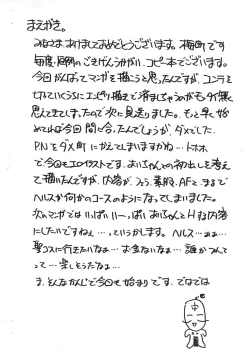 まえがき。
みなさま、あけましておめでとうございます。梅町です
毎度、恒例のごきげんうかがい、コピー本でございます。
今回がんばってマンガを描こうと思ったんですが、コンテを
切っていくうちにエンピツ描きで済ましちゃうのがもう無
思えてきてしまったので次に見送りました。もっと早く始
めてれば今回間に合ったんでしょうが、ダメでした
PNをダメ町にかえてしまいますかね…トホホ
で今回もエロイラストです。あいちゃんとの初出しを考え
て描いたんですが、内容が、フェラ、素股、AFと、まるで
ヘルスか何かのコースのようになってしまいました。
次のマンガではいっぱいいーっぱいあいちゃんとHする内容
にしたいですねぇ…っていうかします。ヘルス…ああ…
聖コスに行きたいなぁ…お金ないなぁ…誰かつれて
って…楽しそうだなぁ…
ま、そんなかんじで今回も始まりです。ではでは
中